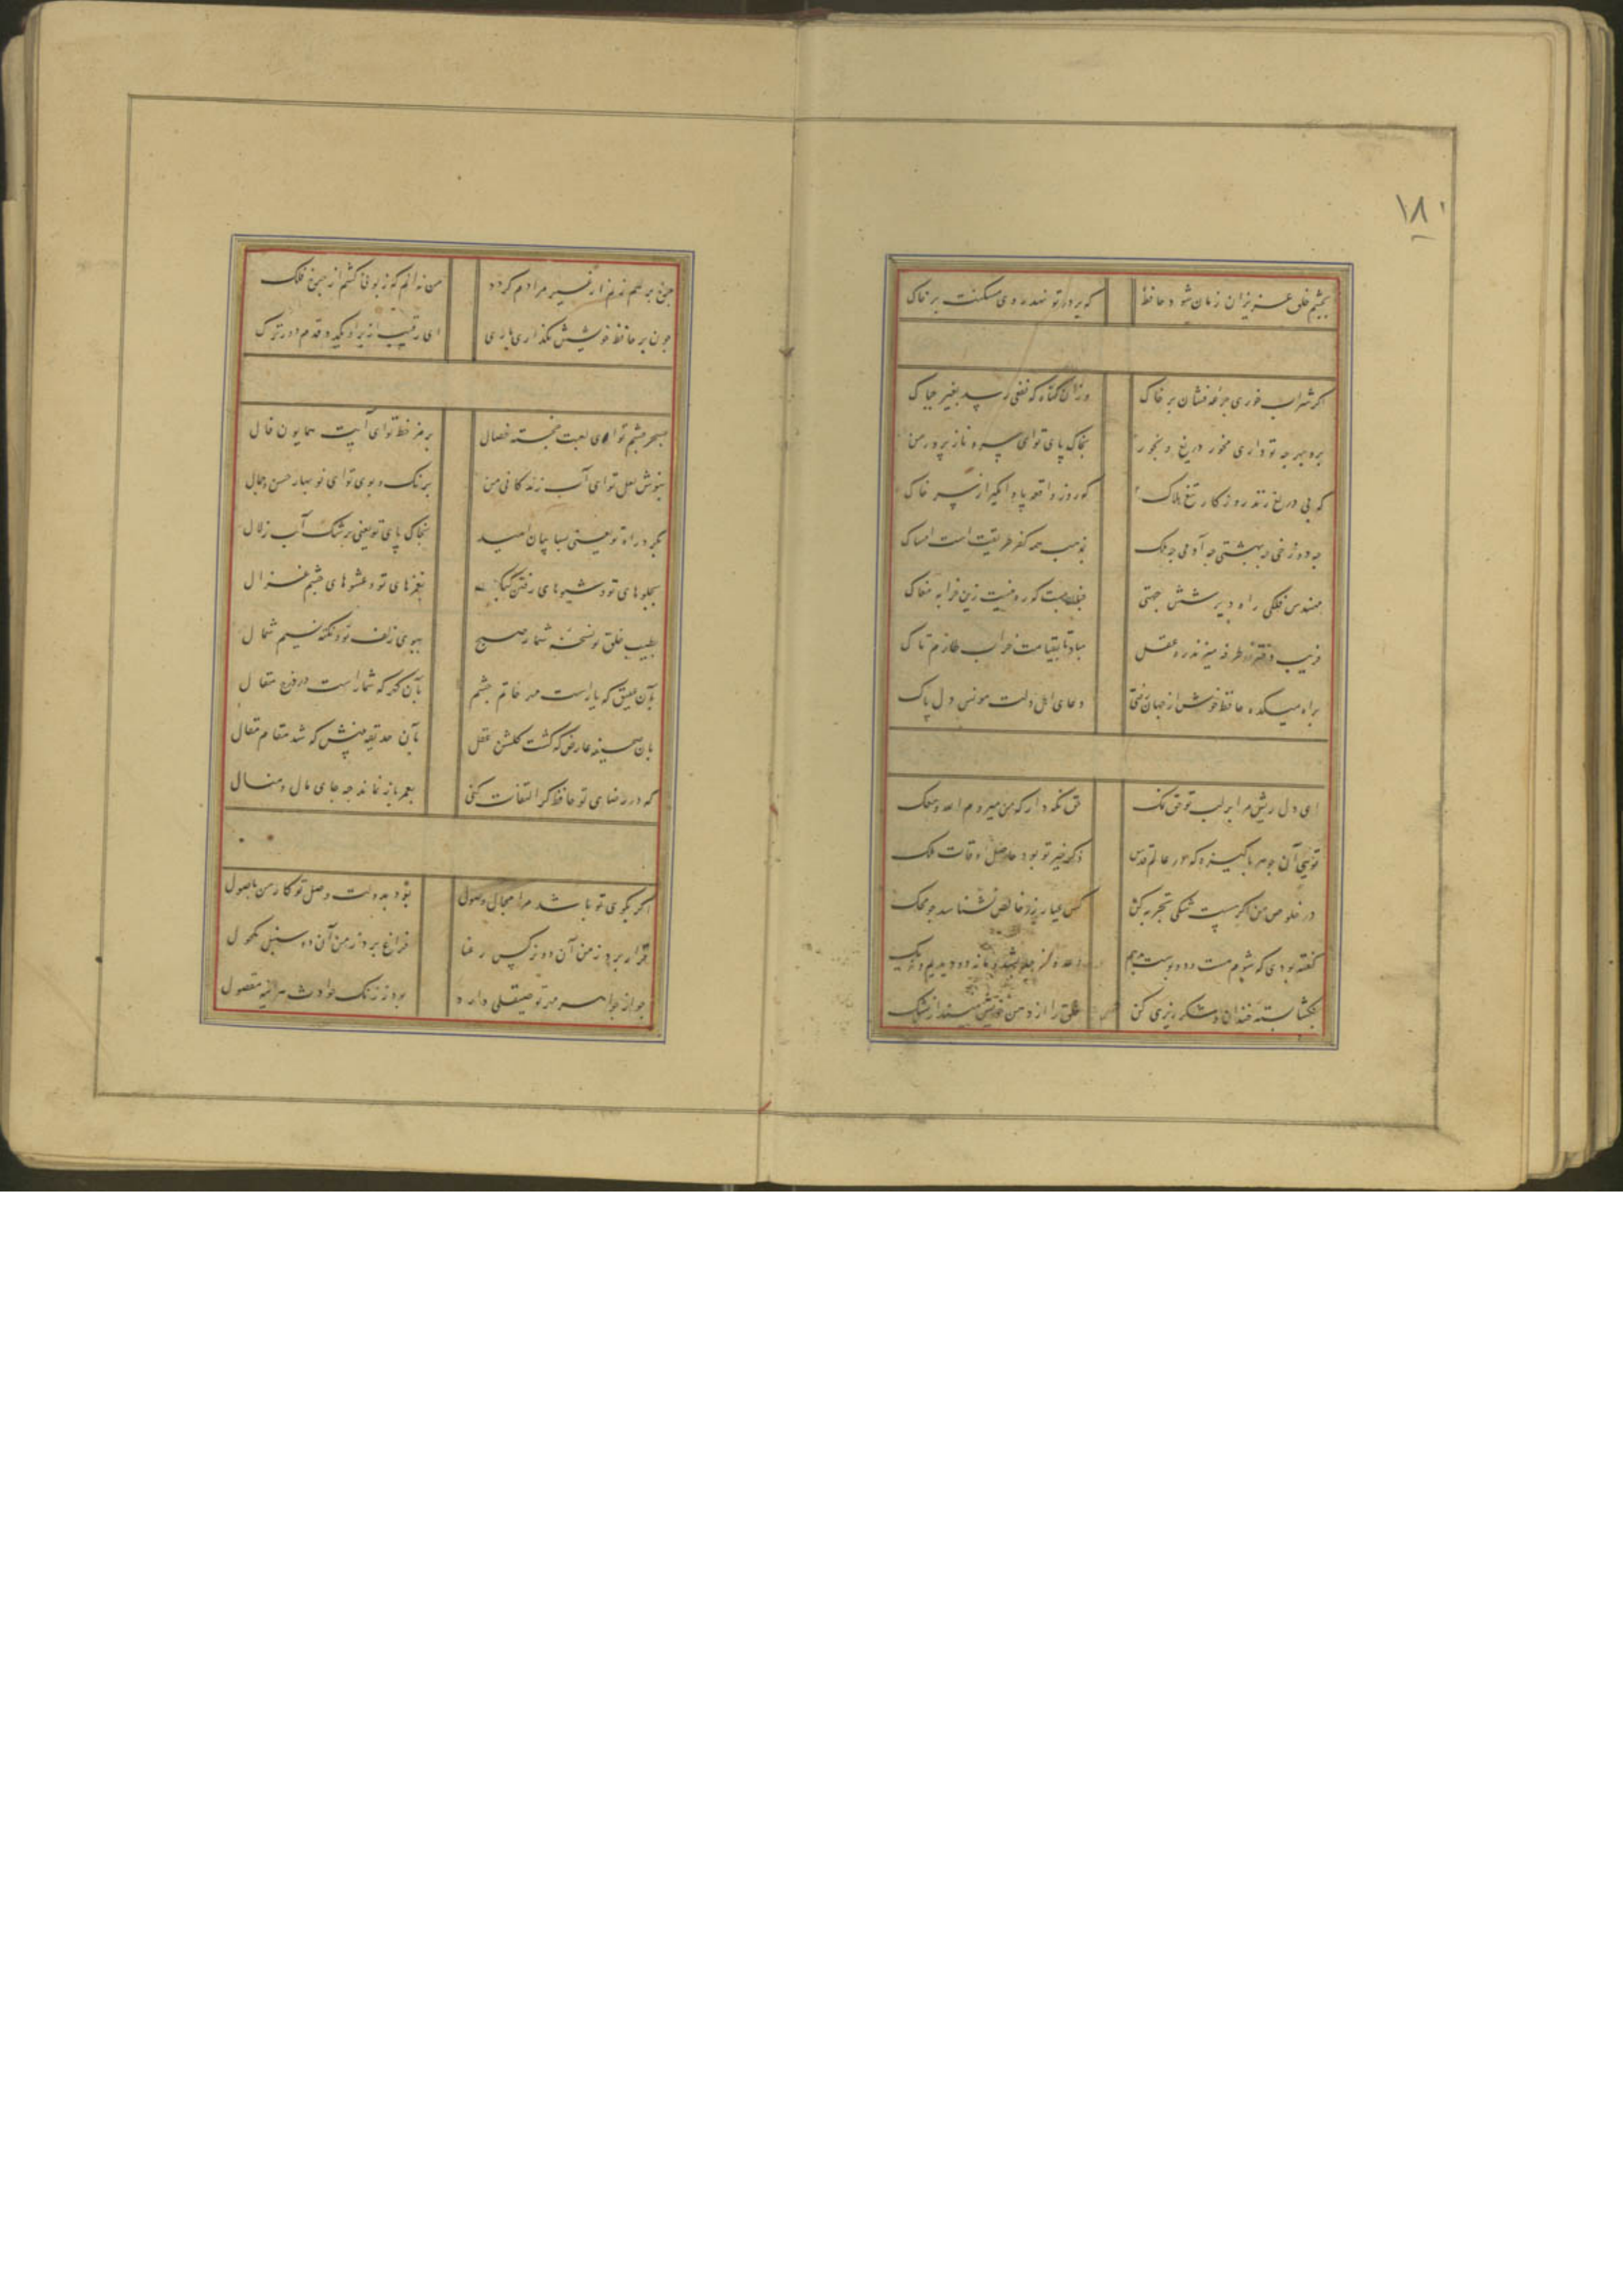 ۱۸۰
بچشم خلق عزیزان زمان شود حافظ که بر در تو نهد روی مسکنت بر خاک
اگر شراب خوری جرعه فشان بر خاک از ان گناه که نفعی رسد بغیر چه باک
برو بهر چه تو داری بخور دریغ مخور که بی دریغ زند روزگار تیغ هلاک
بخاک پای تو ای سرو ناز پرور من که روز واقعه پا وامگیر از سر خاک
چه دوزخی چه بهشتی چه آدمی چه ملک بمذهب همه کفر طریقت است امساک
مهندس فلکی راه دیر شش جهتی چنان ببست که ره نیست زین خرابه مغاک
فریب دختر رز طرفه میزند ره عقل مباد تا بقیامت خراب طارم تاک
براه میکده حافظ خوش از جهان رفتی دعای اهل دلت مونس دل پاک
ای دل ریش مرا بر لب تو حق نمک حق نگه دار که من میروم الله معک
تویی آن جوهر پاکیزه که در عالم قدس ذکر خیر تو بود حاصل اوقات ملک
در خلوص من اگر هست شکی تجربه کن کس عیار زر خالص نشناسد چو محک
گفته بودی که شوم مست و دو بوست بدهم وعده از حد بشد و ما نه دو دیدیم و نه یک
بگشا پسته خندان و شکر ریزی کن خلق را از دهن خویش مینداز بشک
چرخ بر هم زنم ار غیر مرادم گردد من نه آنم که زبونی کشم از چرخ فلک
چون بر حافظ خویشش نگذاری باری ای رقیب از بر او یکدو قدم دورترک
بسحر چشم تو ای لعبت خجسته خصال برمز خط تو ای آیت همایون فال
بنوش لعل تو ای آب زندگانی من برنگ و بوی تو ای نو بهار حسن و جمال
بگرد راه تو یعنی بسایبان امید بخاک پای تو یعنی برشک آب زلال
بجلوهای تو و شیوهای رفتن کبک بغمزهای تو و عشوهای چشم غزال
بطیب خلق تو و نسخه شمار صبح ببوی زلف تو و نکهت نسیم شمال
بآن عقیق که ما راست مهر خاتم چشم بآن گهر که شما راست در درج مقال
بآن صحیفه عارض که گشت گلشن عقل بآن حدیقه بینش که شد مقام مقال
که در رضای تو حافظ گر التفات کنی بعمر باز نماند چه جای مال و منال
اگر بکوی تو باشد مرا مجال وصول بود به دولت وصل تو کار من باصول
قرار برده ز من آن دو نرگس رعنا فراغ برده ز من آن دو سنبل مکحول
چو از جواهر مهر تو صیقلی دارد بود ز زنگ حوادث هر آینه مصقول